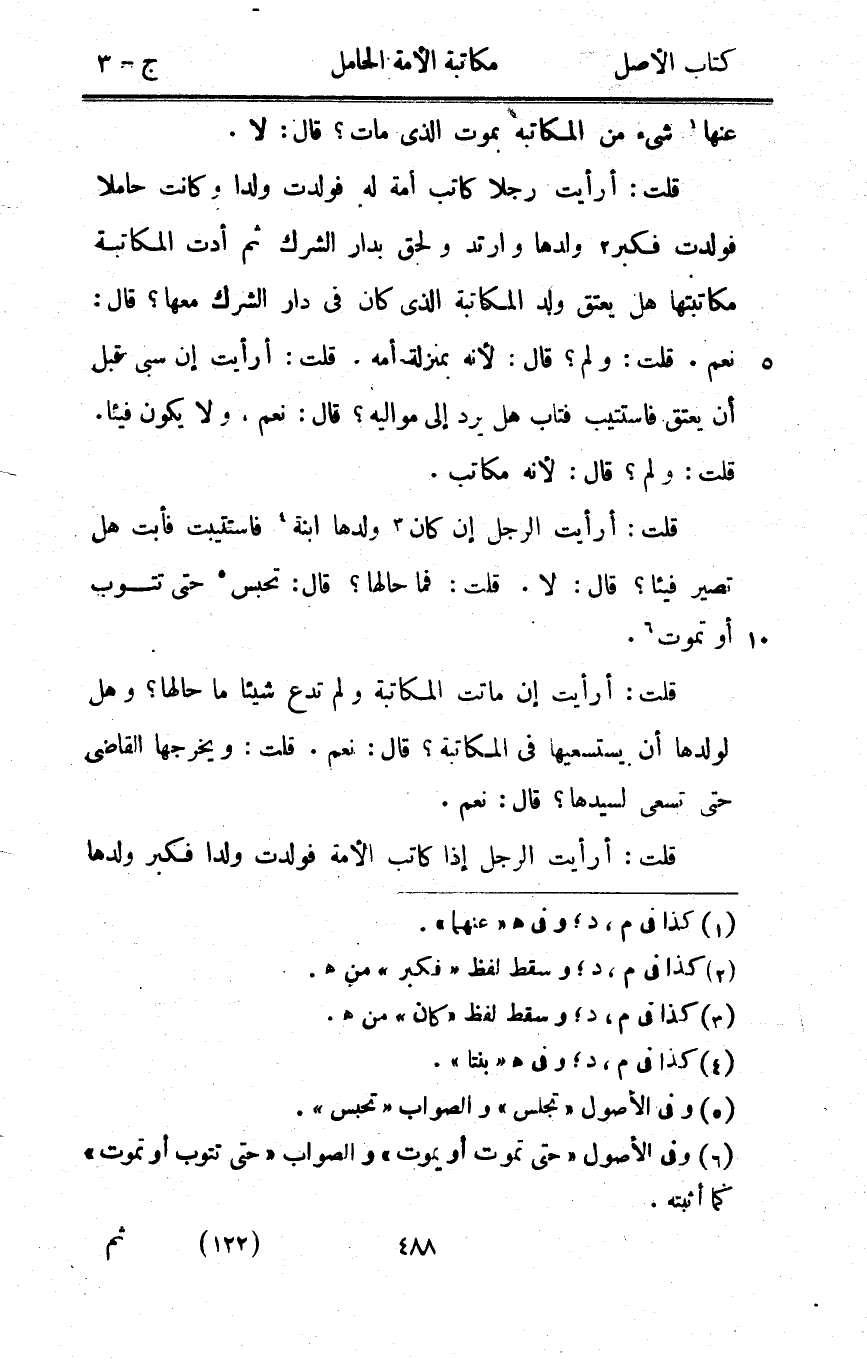 كتاب الأصل مكاتبة الأمة الحامل ج - ٣
عنها١ شىء من المكاتبة بموت الذى مات؟ قال: لا .
قلت: أرأيت رجلا كاتب أمة له فولدت ولدا وكانت حاملا
فولدت فكبر٢ ولدها وارتد ولحق بدار الشرك ثم أدت المكاتبة
مكاتبتها هل يعتق ولد المكاتبة الذى كان فى دار الشرك معها؟ قال:
٥ نعم . قلت: ولم؟ قال: لأنه بمنزلة أمه . قلت: أرأيت إن سبى قبل
أن يعتق فاستتيب فتاب هل يرد إلى مواليه؟ قال: نعم ، ولا يكون فيئا.
قلت: ولم؟ قال: لأنه مكاتب .
قلت: أرأيت الرجل إن كان٣ ولدها ابنة٤ فاستتيبت فأبت هل
تصير فيئا؟ قال: لا . قلت: فما حالها؟ قال: تحبس٥ حتى تتوب
١٠ أو تموت٦ .
قلت: أرأيت إن ماتت المكاتبة ولم تدع شيئا ما حالها؟ وهل
لولدها أن يستسعيها فى المكاتبة؟ قال: نعم . قلت: ويخرجها القاضى
حتى تسعى لسيدها؟ قال: نعم .
قلت: أرأيت الرجل إذا كاتب الأمة فولدت ولدا فكبر ولدها
(١) كذا فى م ، د ؛ و فى ه « عنهما » .
(٢) كذا فى م ، د ؛ و سقط لفظ « فكبر » من ه .
(٣) كذا فى م ، د ؛ و سقط لفظ «كان» من ه .
(٤) كذا فى م ، د ؛ و فى ه « بنتا » .
(٥) و فى الأصول « تجلس » و الصواب « تحبس » .
(٦) وفى الأصول « حتى تموت أو يموت » و الصواب « حتى تتوب أو تموت »
كما أثبته .
٤٨٨ (١٢٢) ثم